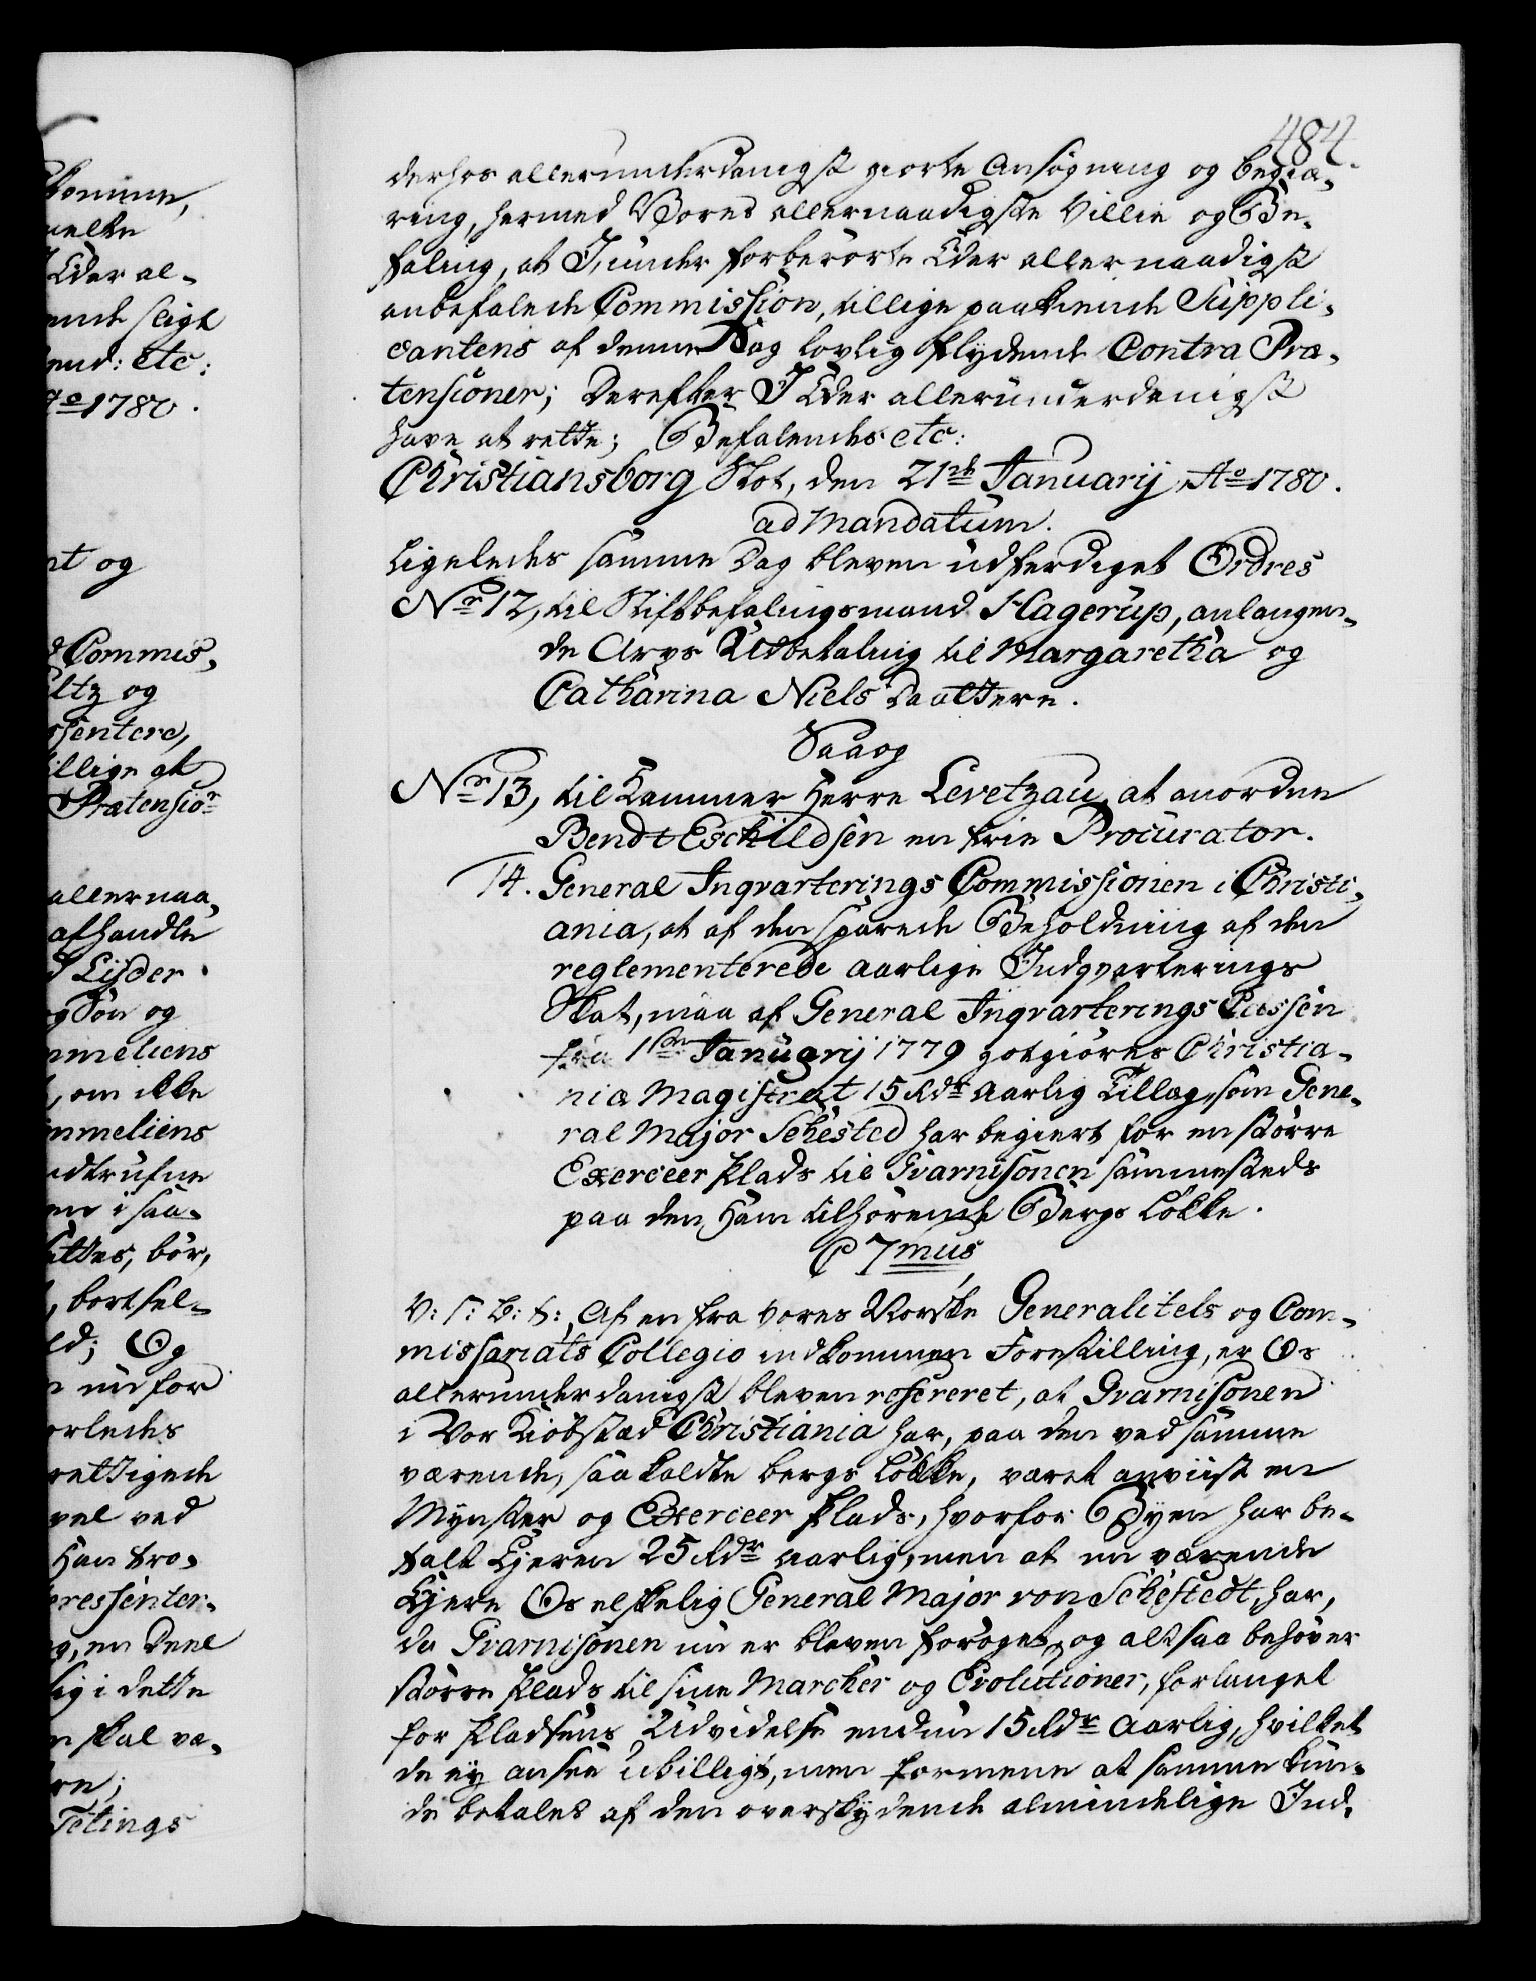 484.
derhos allerunderdanigst giorte Ansøgning og begiæ-
ring, hermed Vores allernaadigste Villie og Be-
faling, at I, under forberørte Eder allernaadigst
anbefalede Commission, tillige paakiende Suppli-
cantens af denne Sag lovlig flydende Contra Præ-
tensioner; Derefter I Eder allerunderdanigst
have at rette; Befalendes etc:
Christiansborg Slot, den 21de Januarij, Ao 1780.
ad Mandatum.
Ligeledes samme Dag bleven udferdiget Ordres
Nr 12, til Stiftbefalingsmand Hagerup, anlangen-
de Arvs Udbetaling til Margaretha og
Catharina Niels Daattere.
Saaog
Nr 13, til Kammer Herre Levetzau, at anordne
Bendt Eschildsen en frie Procurator.
14. General Ingvarterings Commissionen i Christi-
ania, at af den sparede Beholdning af den
reglementerede aarlige Indqvarterings
Skat, maa af General Ingvarterings Cassen
fra 1ste Januarij 1779 godgiøres Christia-
nia Magistrat 15 Rdr aarlig Tillæg, som Gene-
ral Major Sehested har begiert for en større
Exerceer Plads til Gvarnisonen sammesteds
paa den Ham tilhørende Bergs Løkke.
C 7mus
V: S: G: T: Af en fra Vores Norske Generalitets og Com-
missariats Collegio indkommen Forestilling, er Os
allerunderdanigst bleven refereret, at Gvarnisonen
i Vor Kiøbstæd Christiania har, paa den ved samme
værende, saa kaldte bergs Løkke, været anviist en
Mynster og Exerceer Plads, hvorfor Byen har be-
talt Ejeren 25 Rdr aarlig, men at nu værende
Ejere Os elskelig General Major von Sehestedt, har,
da Gvarnisonen nu er bleven forøget, og altsaa behøver
større Plads til sine Marcher og Evolutioner, forlanget
for Pladsens Udvidelse endnu 15 Rdr aarlig, hvilket
de ey ansee ubilligt, men formene at samme kun-
de betales af den overskydende almindelige Ind-